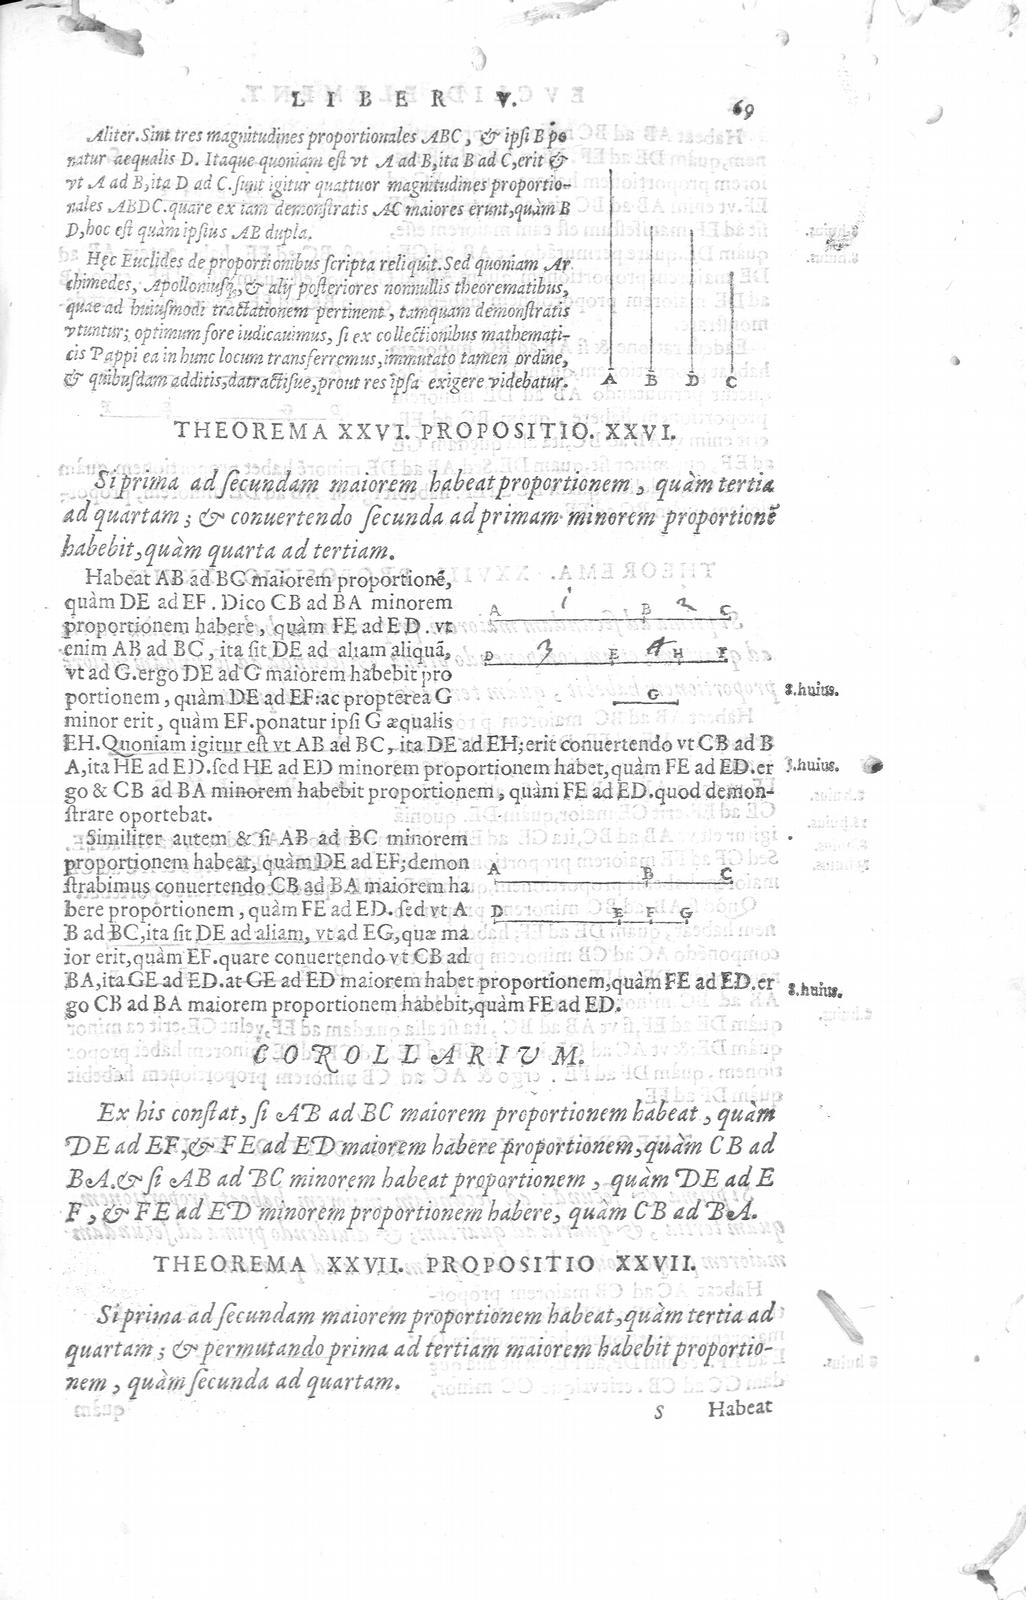 LIBER V. 69
Aliter. Sint tres magnitudines proportionales ABC, & ipsi B po
natur aequalis D. Itaque quoniam est vt A ad B, ita B ad C, erit &
vt A ad B, ita D ad C. sunt igitur quattuor magnitudines proportio-
nales ABDC. quare ex iam demonstratis AC maiores erunt, quàm B
D, hoc est quàm ipsius AB dupla.
Hęc Euclides de proportionibus scripta reliquit. Sed quoniam Ar
chimedes, Apolloniusq;, & alij posteriores nonnullis theorematibus,
quae ad huiusmodi tractationem pertinent, tamquam demonstratis
vtuntur; optimum fore iudicauimus, si ex collectionibus mathemati-
cis Pappi ea in hunc locum transferremus, immutato tamen ordine,
& quibusdam additis, datractisue, prout res ipsa exigere videbatur.
A B D C
THEOREMA XXVI. PROPOSITIO. XXVI.
Si prima ad secundam maiorem habeat proportionem, quàm tertia
ad quartam; & conuertendo secunda ad primam minorem proportionē
habebit, quàm quarta ad tertiam.
Habeat AB ad BC maiorem proportionē,
quàm DE ad EF. Dico CB ad BA minorem
proportionem habere, quàm FE ad ED. vt
enim AB ad BC, ita sit DE ad aliam aliquā,
vt ad G. ergo DE ad G maiorem habebit pro
portionem, quàm DE ad EF: ac propterea G
minor erit, quàm EF. ponatur ipsi G æqualis
EH. Quoniam igitur est vt AB ad BC, ita DE ad EH; erit conuertendo vt CB ad B
A, ita HE ad ED. sed HE ad ED minorem proportionem habet, quàm FE ad ED. er
go & CB ad BA minorem habebit proportionem, quàm FE ad ED. quod demon-
strare oportebat.
A 1 B 2 C
D 3 E 4 H F
G
8. huius.
8. huius.
Similiter autem & si AB ad BC minorem
proportionem habeat, quàm DE ad EF; demon
strabimus conuertendo CB ad BA maiorem ha
bere proportionem, quàm FE ad ED. sed vt A
B ad BC, ita sit DE ad aliam, vt ad EG, quæ ma
ior erit, quàm EF. quare conuertendo vt CB ad
BA, ita GE ad ED. at GE ad ED maiorem habet proportionem, quàm FE ad ED. er
go CB ad BA maiorem proportionem habebit, quàm FE ad ED.
A B C
D E F G
8. huius.
COROLLARIVM.
Ex his constat, si AB ad BC maiorem proportionem habeat, quàm
DE ad EF, & FE ad ED maiorem habere proportionem, quàm CB ad
BA. & si AB ad BC minorem habeat proportionem, quàm DE ad E
F, & FE ad ED minorem proportionem habere, quàm CB ad BA.
THEOREMA XXVII. PROPOSITIO XXVII.
Si prima ad secundam maiorem proportionem habeat, quàm tertia ad
quartam; & permutando prima ad tertiam maiorem habebit proportio-
nem, quàm secunda ad quartam.
S Habeat